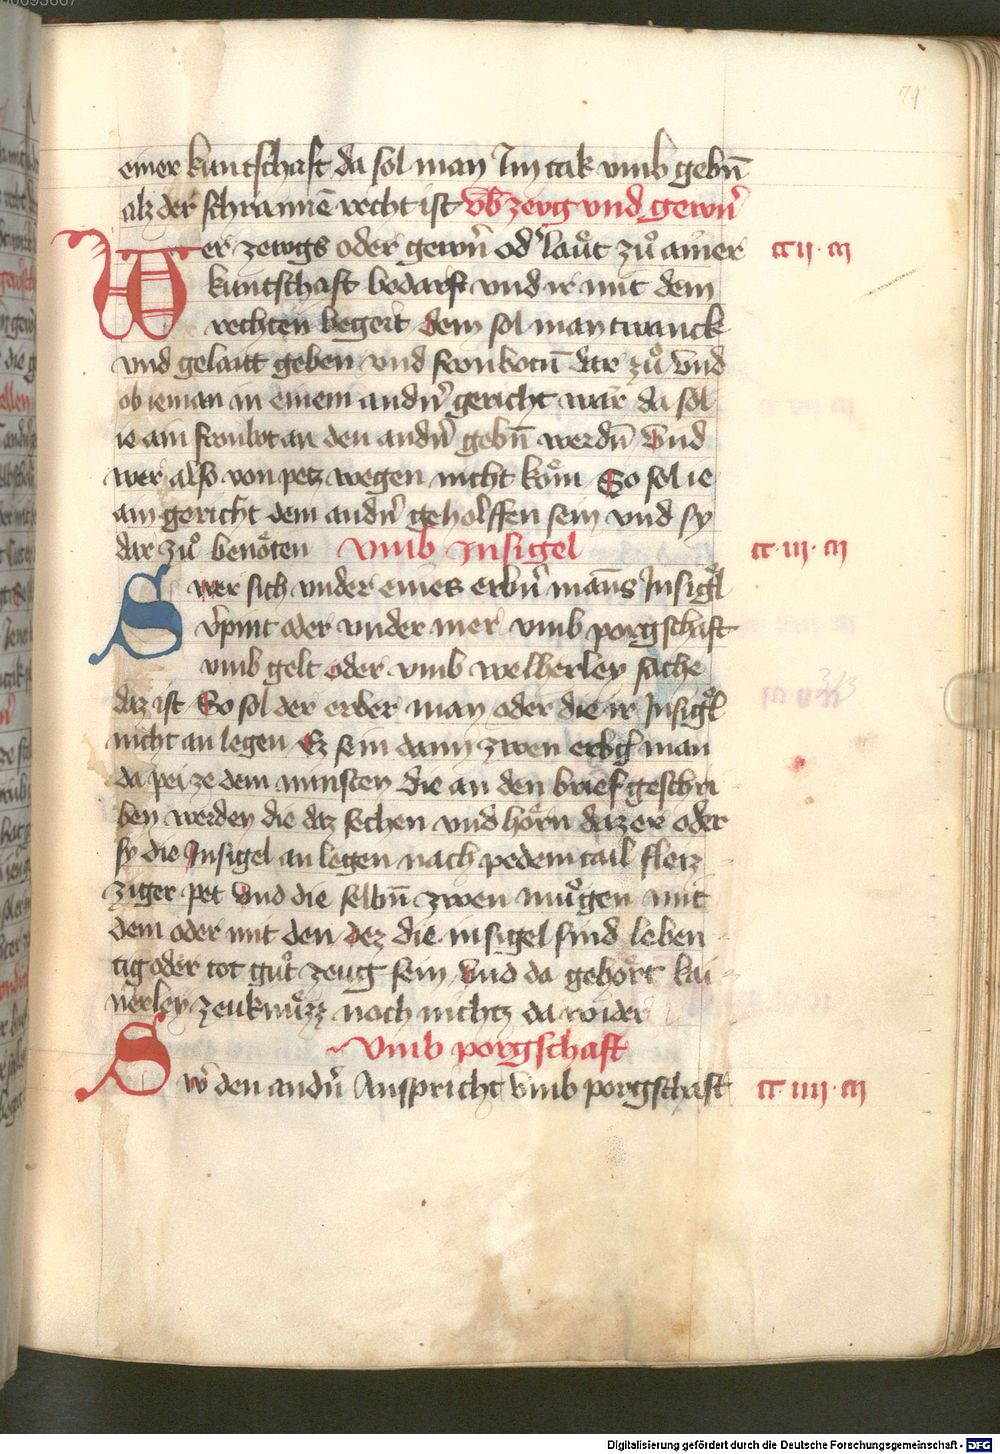 74
einer kuntschaft da sol man Im tak vmb gebn̄
alz der schrannē recht ist vb̄ zevg vnd gewn̄
Wer zewgs oder gewn̄ od' laůt zů ainer
ccii · ca
kuntschaft bedarff vnd ir mit dem
rechten begert dem sol man twanck
vnd gelaitt geben vnd fronbotn̄ dar zů Vnd
ob ieman in einem andn̄ gericht wär da sol
ie ain fronbot an den andn̄ gebn̄ werdn̄ Vnd
wer also von petz wegen nicht köm So sol ie
ain gericht dem andn̄ geholffen sein vnd sy
dar zů benöten vmb Insigel
cc · iii · ca
Swer sich vnder eines erbn̄ mans Insigl
v̄pint oder vnder mer vmb porgschaft
vmb gelt oder vmb welherley sache
daz ist So sol der erber man oder die ir Insigl
nicht an legen Ez sein dann zwen erbg man
da pei ze dem minsten die an den brief geschri
ben werden die daz sechen vnd hörn daz er oder
sy die Insigel an legen nach pedem tail fleiz
ziger pet Vnd die selbn̄ zwen mügen mit
dem oder mit den dez die insigel sind leben
tig oder tot gůt zeug sein Vnd da gehört kai
nerley zeuknüzz noch nichtz da wider
Vmb porgschaft
Sw̄ den andn̄ Anspricht Vmb porgschaft
cc · iiii · ca
Digitalisierung gefördert durch die Deutsche Forschungsgemeinschaft - DFG